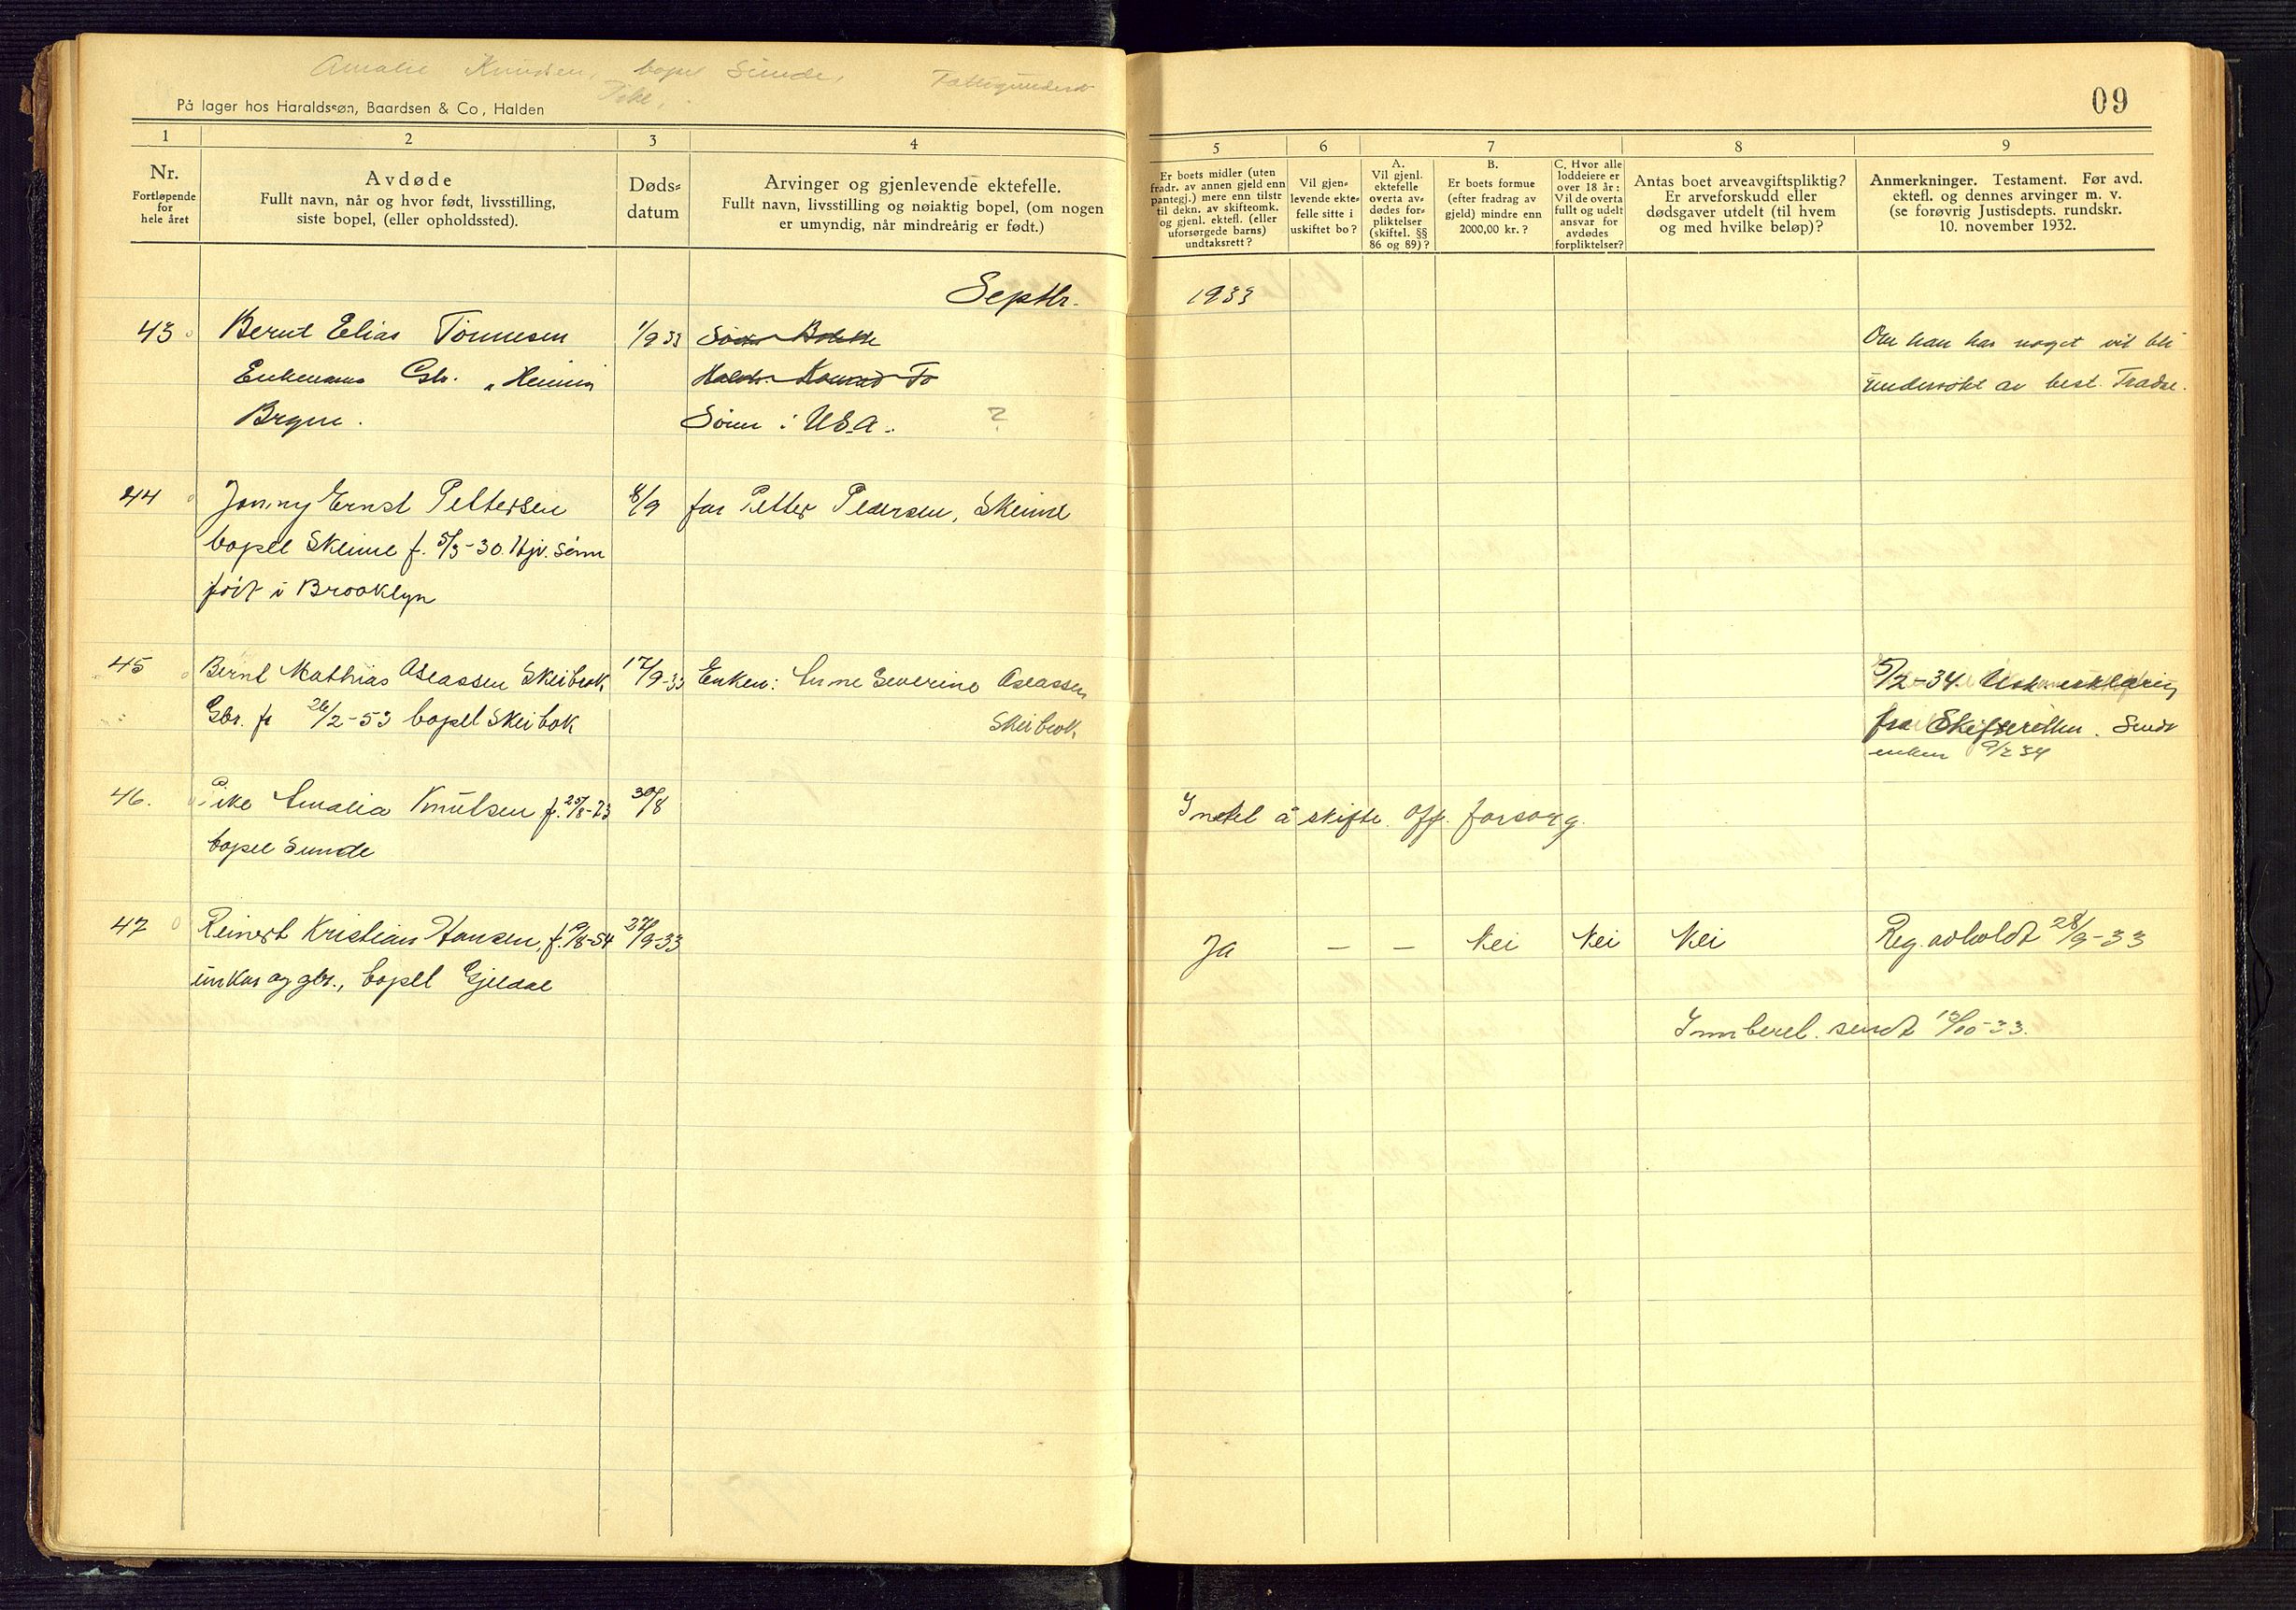 Amalie Knudsen, bopel Sunde,
På lager hos Haraldssøn, Baardsen & Co, Halden
09
1 2 3 4 5 6 7 8 9
Nr.
Fortløpende
for
hele året
Avdøde
Fullt navn, når og hvor født, livsstilling,
siste bopel, (eller opholdssted).
Døds=
datum
Arvinger og gjenlevende ektefelle.
Fullt navn, livsstilling og nøiaktig bopel, (om nogen
er umyndig, når mindreårig er født.)
Er boets midler (uten
fradr. av annen gjeld enn
pantegj.) mere enn tilstr
til dekn. av skifteomk.
og gjenl. ektefl. (eller
uforsørgede barns)
undtaksrett?
Vil gjen=
levende ekte=
felle sitte i
uskiftet bo?
A.
Vil gjenl.
ektefelle
overta av=
dødes for=
pliktelser
(skiftel. §§
86 og 89)?
B.
Er boets formue
(efter fradrag av
gjeld) mindre enn
2000,00 kr.?
C. Hvor alle
loddeiere er
over 18 år:
Vil de overta
fullt og udelt
ansvar for
avdødes
forpliktelser?
Antas boet arveavgiftspliktig?
Er arveforskudd eller
dødsgaver utdelt (til hvem
og med hvilke beløp)?
Anmerkninger. Testament. Før avd.
ektefl. og dennes arvinger m. v.
(se forøvrig Justisdepts. rundskr.
10. november 1932.
Septbr. 1933
43 Bernt Elias Tønnesen 1/9 33
Om han har noget vil bli
Enkemann Gbr. "
undersøkt av best.
Brgne.
Sønn i USA. ?
44 Jonny Ernst Pettersen 8/9 far Petter Pedersen, Skeime
bopel Skeime f. 5/3-30. Hjv. sønn
født i Brooklyn
45 Bernt Mathias Aseassen Skeibrok 17/9-33 Enken: Anne Severine Aseassen
Skeibrok.
Gbr. f. 26/2-53 bopel Skeibrok
5/2-34.
fra Skifteretten. Sendt
enken 9/2 34
46. Pike Amalia Knutsen f. 25/8-73 30/8 Intet å skifte. Off. forsorg.
bopel Sunde
47 Reinert Kristian Hansen, f. 9/8-54 27/9-33 Ja – – Nei Nei Nei Reg. avholdt 28/9-33
unkar og gbr., bopel Gjeldal
Innberet. sendt 13/10-33.